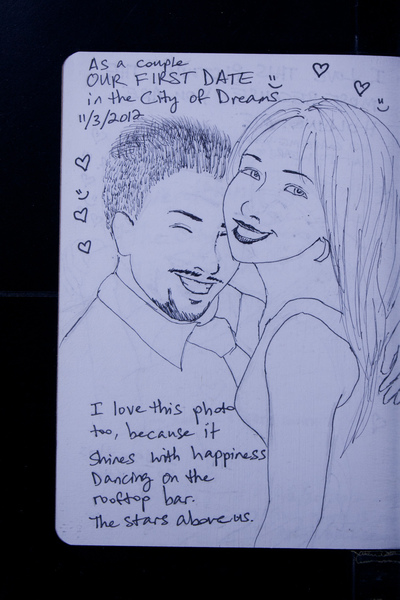 As a couple
OUR FIRST DATE
in the City of Dreams
11/3/2012
I love this photo
too, because it
shines with happiness
Dancing on the
rooftop bar.
The stars above us.